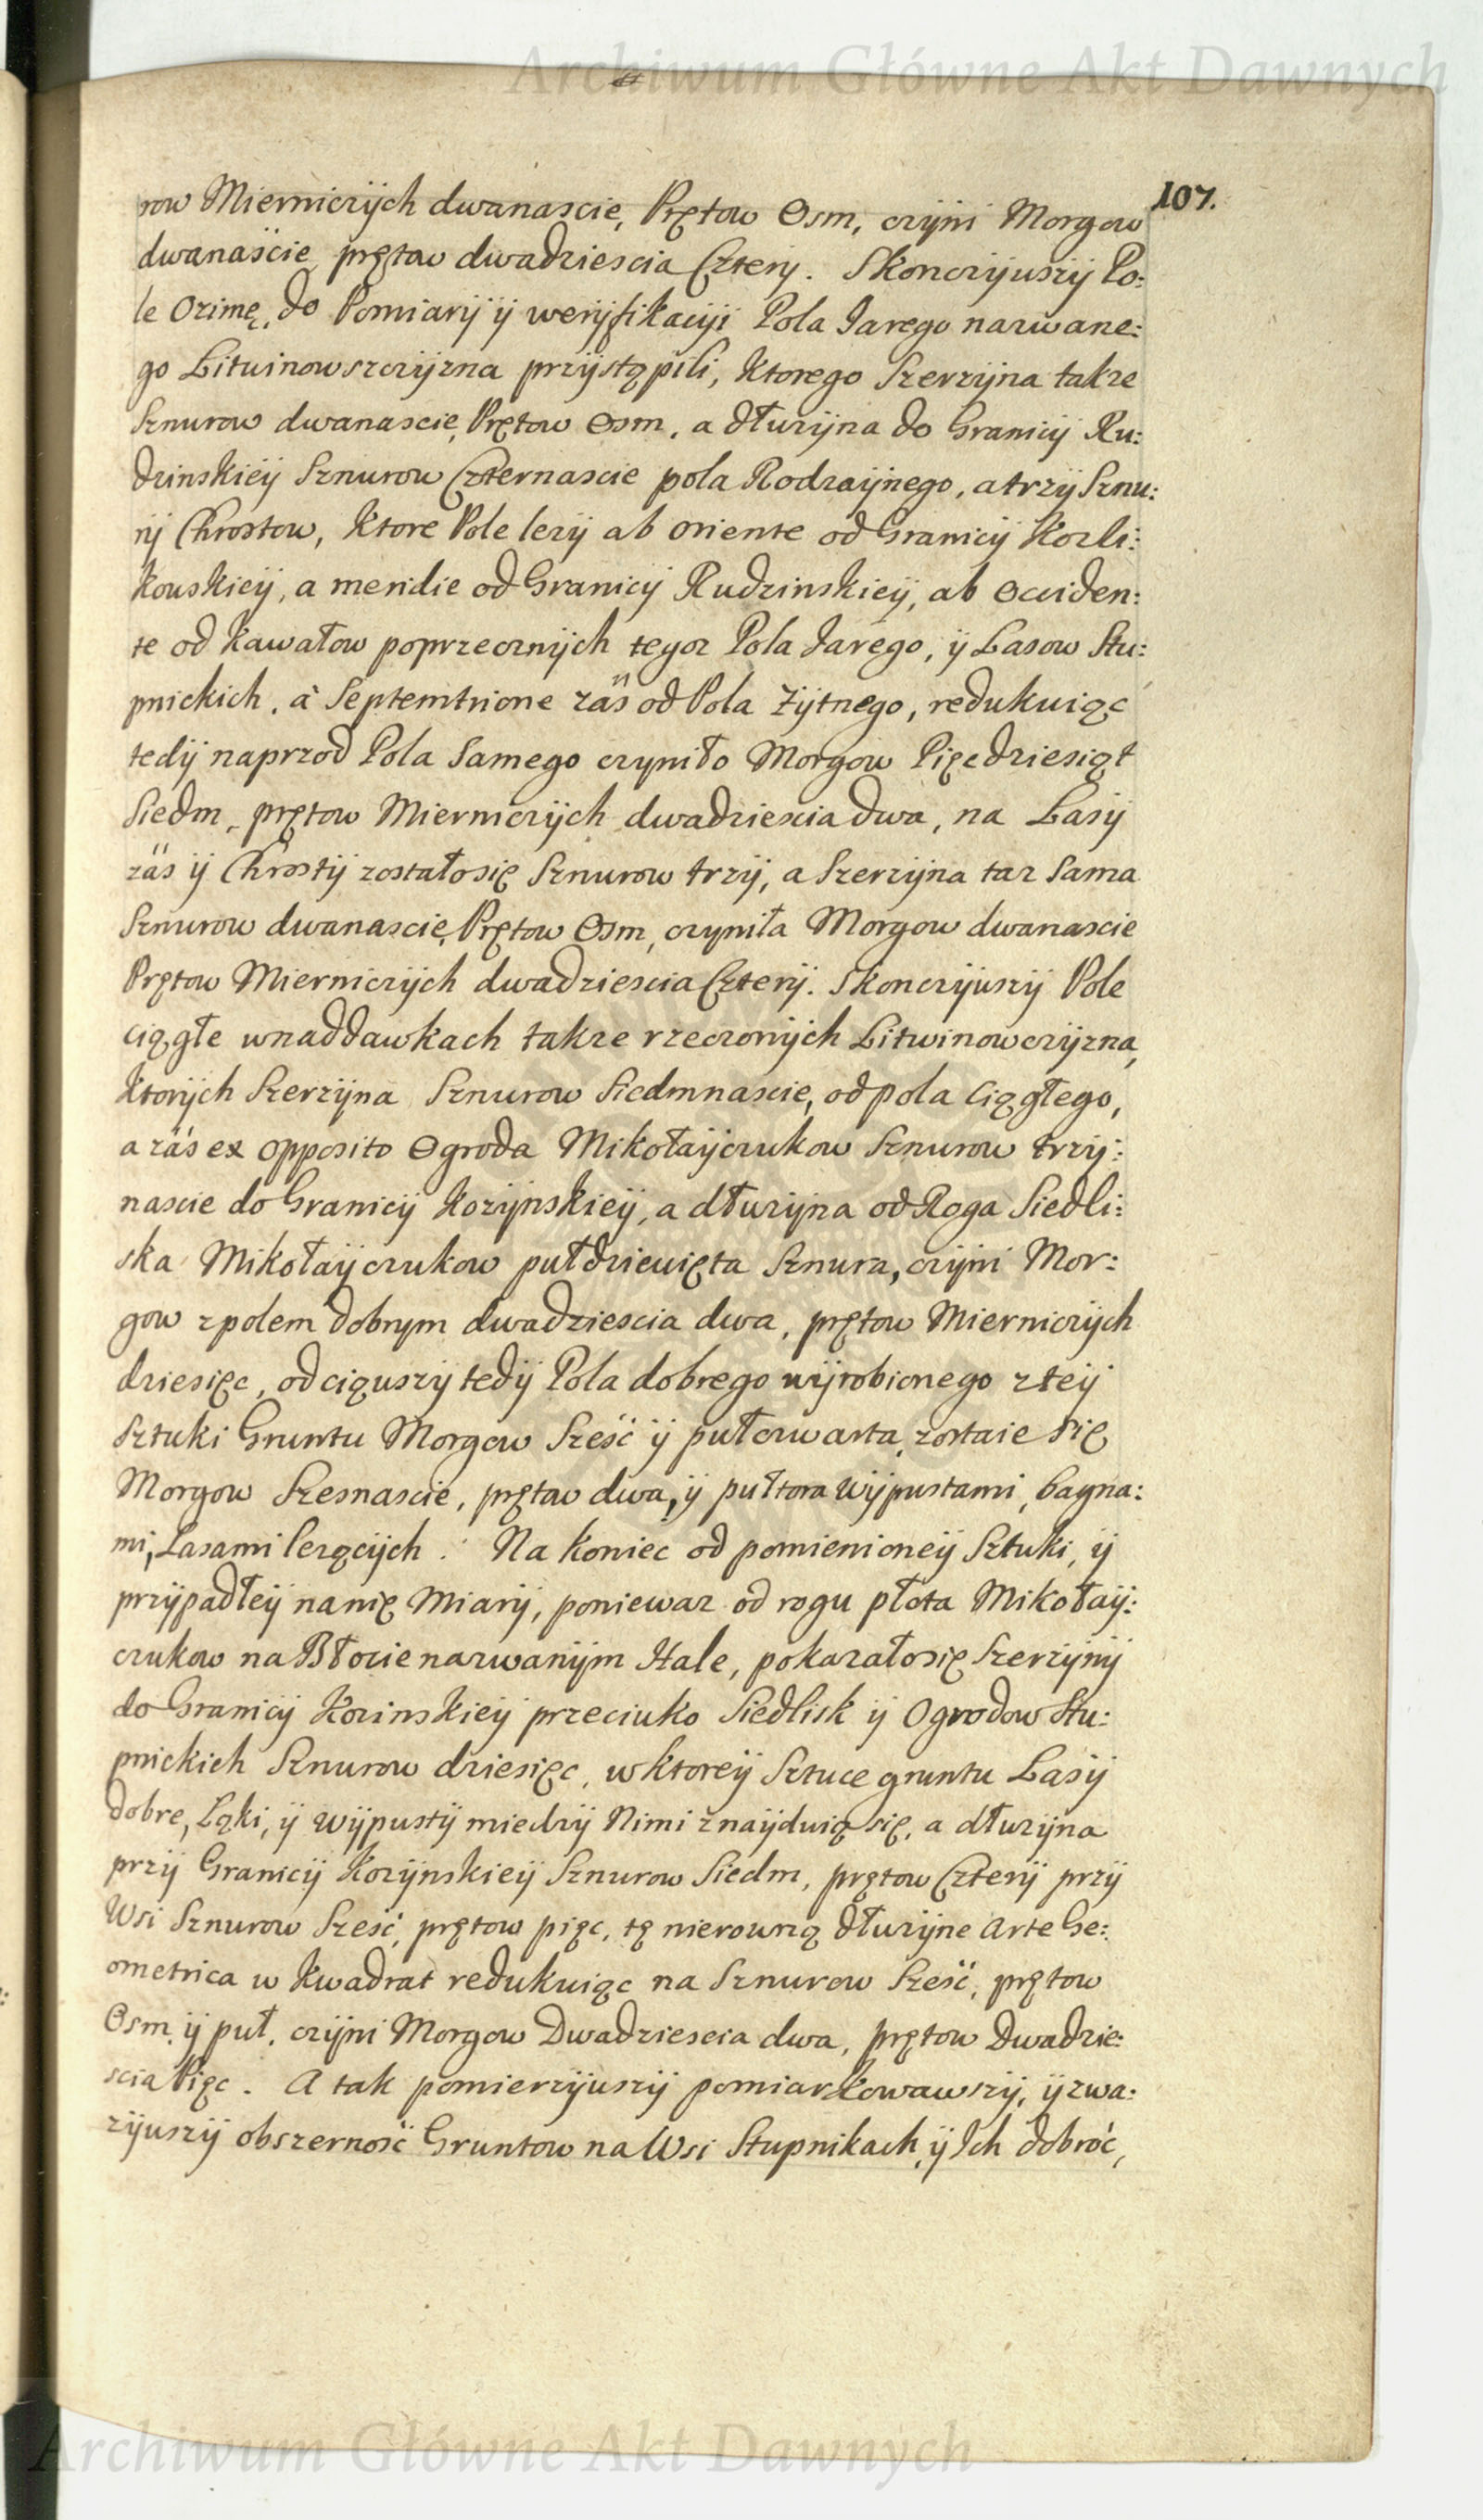 Archiwum Główne Akt Dawnych
107.
row Mierniczÿch dwanascie, Prętow Osm, czÿni Morgow
dwanaście, prętow dwadziescia Czterÿ. Skonczÿuszÿ Po:
le Ozimę, do Pomiarÿ ÿ werÿfikacÿi Pola Jarego nazwane:
go Litwinowszczÿzna przÿstąpili, ktorego Szerzÿna takze
Sznurow dwanascie, Prętow Osm, a dłuzÿna do Granicÿ Ru:
dzinskieÿ Sznurow Czternascie pola Rodzaÿnego, a trzÿ Sznu:
rÿ Chrostow, ktore Pole lezÿ ab oriente od Granicÿ Kozli:
kouskieÿ, a meridie od Granicÿ Rudzinskieÿ, ab Occiden:
te od kawałow poprzecznÿch tegoz Pola Jarego, ÿ Lasow Stu:
pnickich, à Septemtrione zaś od Pola Zÿtnego, redukuiąc
tedÿ naprzod Pola Samego czyniło Morgow Pięcdziesiąt
Siedm, prętow Mierniczÿch dwadziescia dwa, na Lasÿ
zaś ÿ Chrostÿ zostało się Sznurow trzÿ, a Szerzÿna taz Sama
Sznurow dwanascie, Prętow Osm, czyniła Morgow dwanascie
Prętow Mierniczÿch dwadziescia Czterÿ. Skonczÿuszÿ Pole
ciągłe wnaddawkach takze rzeczonÿch Litwinowczÿzna,
ktorÿch Szerzÿna Sznurow Siedmnascie, od pola Ciągłego,
a zaś ex opposito Ogroda Mikołaÿczukow Sznurow trzÿ:
nascie do Granicÿ Kozÿnskieÿ, a dłuzÿna od Roga Siedli:
ska Mikołaÿczukow pułdziewięta Sznura, czÿni Mor:
gow z polem dobrym dwadziescia dwa, prętow Mierniczÿch
dziesięc, odciąuszÿ tedÿ Pola dobrego wÿrobionego z teÿ
Sztuki Gruntu Morgow Sześć ÿ pułczwarta, zostaie się
Morgow Szesnascie, prętow dwa, ÿ pułtora Wÿpustami, bagna:
mi, Lasami lezącÿch. Na koniec od pomienioneÿ Sztuki, ÿ
przÿpadłeÿ na nię Miarÿ, poniewaz od rogu płota Mikołaÿ:
czukow na Błocie nazwanÿm Hale, pokazało się Szerzÿnÿ
do Granicÿ Kozinskieÿ przeciuko Siedlisk ÿ Ogrodow Stu:
pnickich Sznurow dziesięc, w ktoreÿ Sztuce gruntu Lasÿ
dobre, Łąki, ÿ Wÿpustÿ miedzÿ Nimi znaÿduią się, a dłuzÿna
przÿ Granicÿ Kozÿnskieÿ Sznurow Siedm, prętow Czterÿ przÿ
Wsi Sznurow Sześć, prętow pięc, tę nierowną dłuzÿne Arte Ge:
ometrica w kwadrat redukuiąc na Sznurow Sześć, prętow
Osm, ÿ puł, czÿni Morgow Dwadziescia dwa, prętow Dwadzie:
scia Pięc. A tak pomierzÿuszÿ pomiarkowawszÿ, ÿ zwa:
zÿuszÿ obszerność Gruntow na Wsi Stupnikach, ÿ Ich dobroć,
Archiwum Główne Akt Dawnych